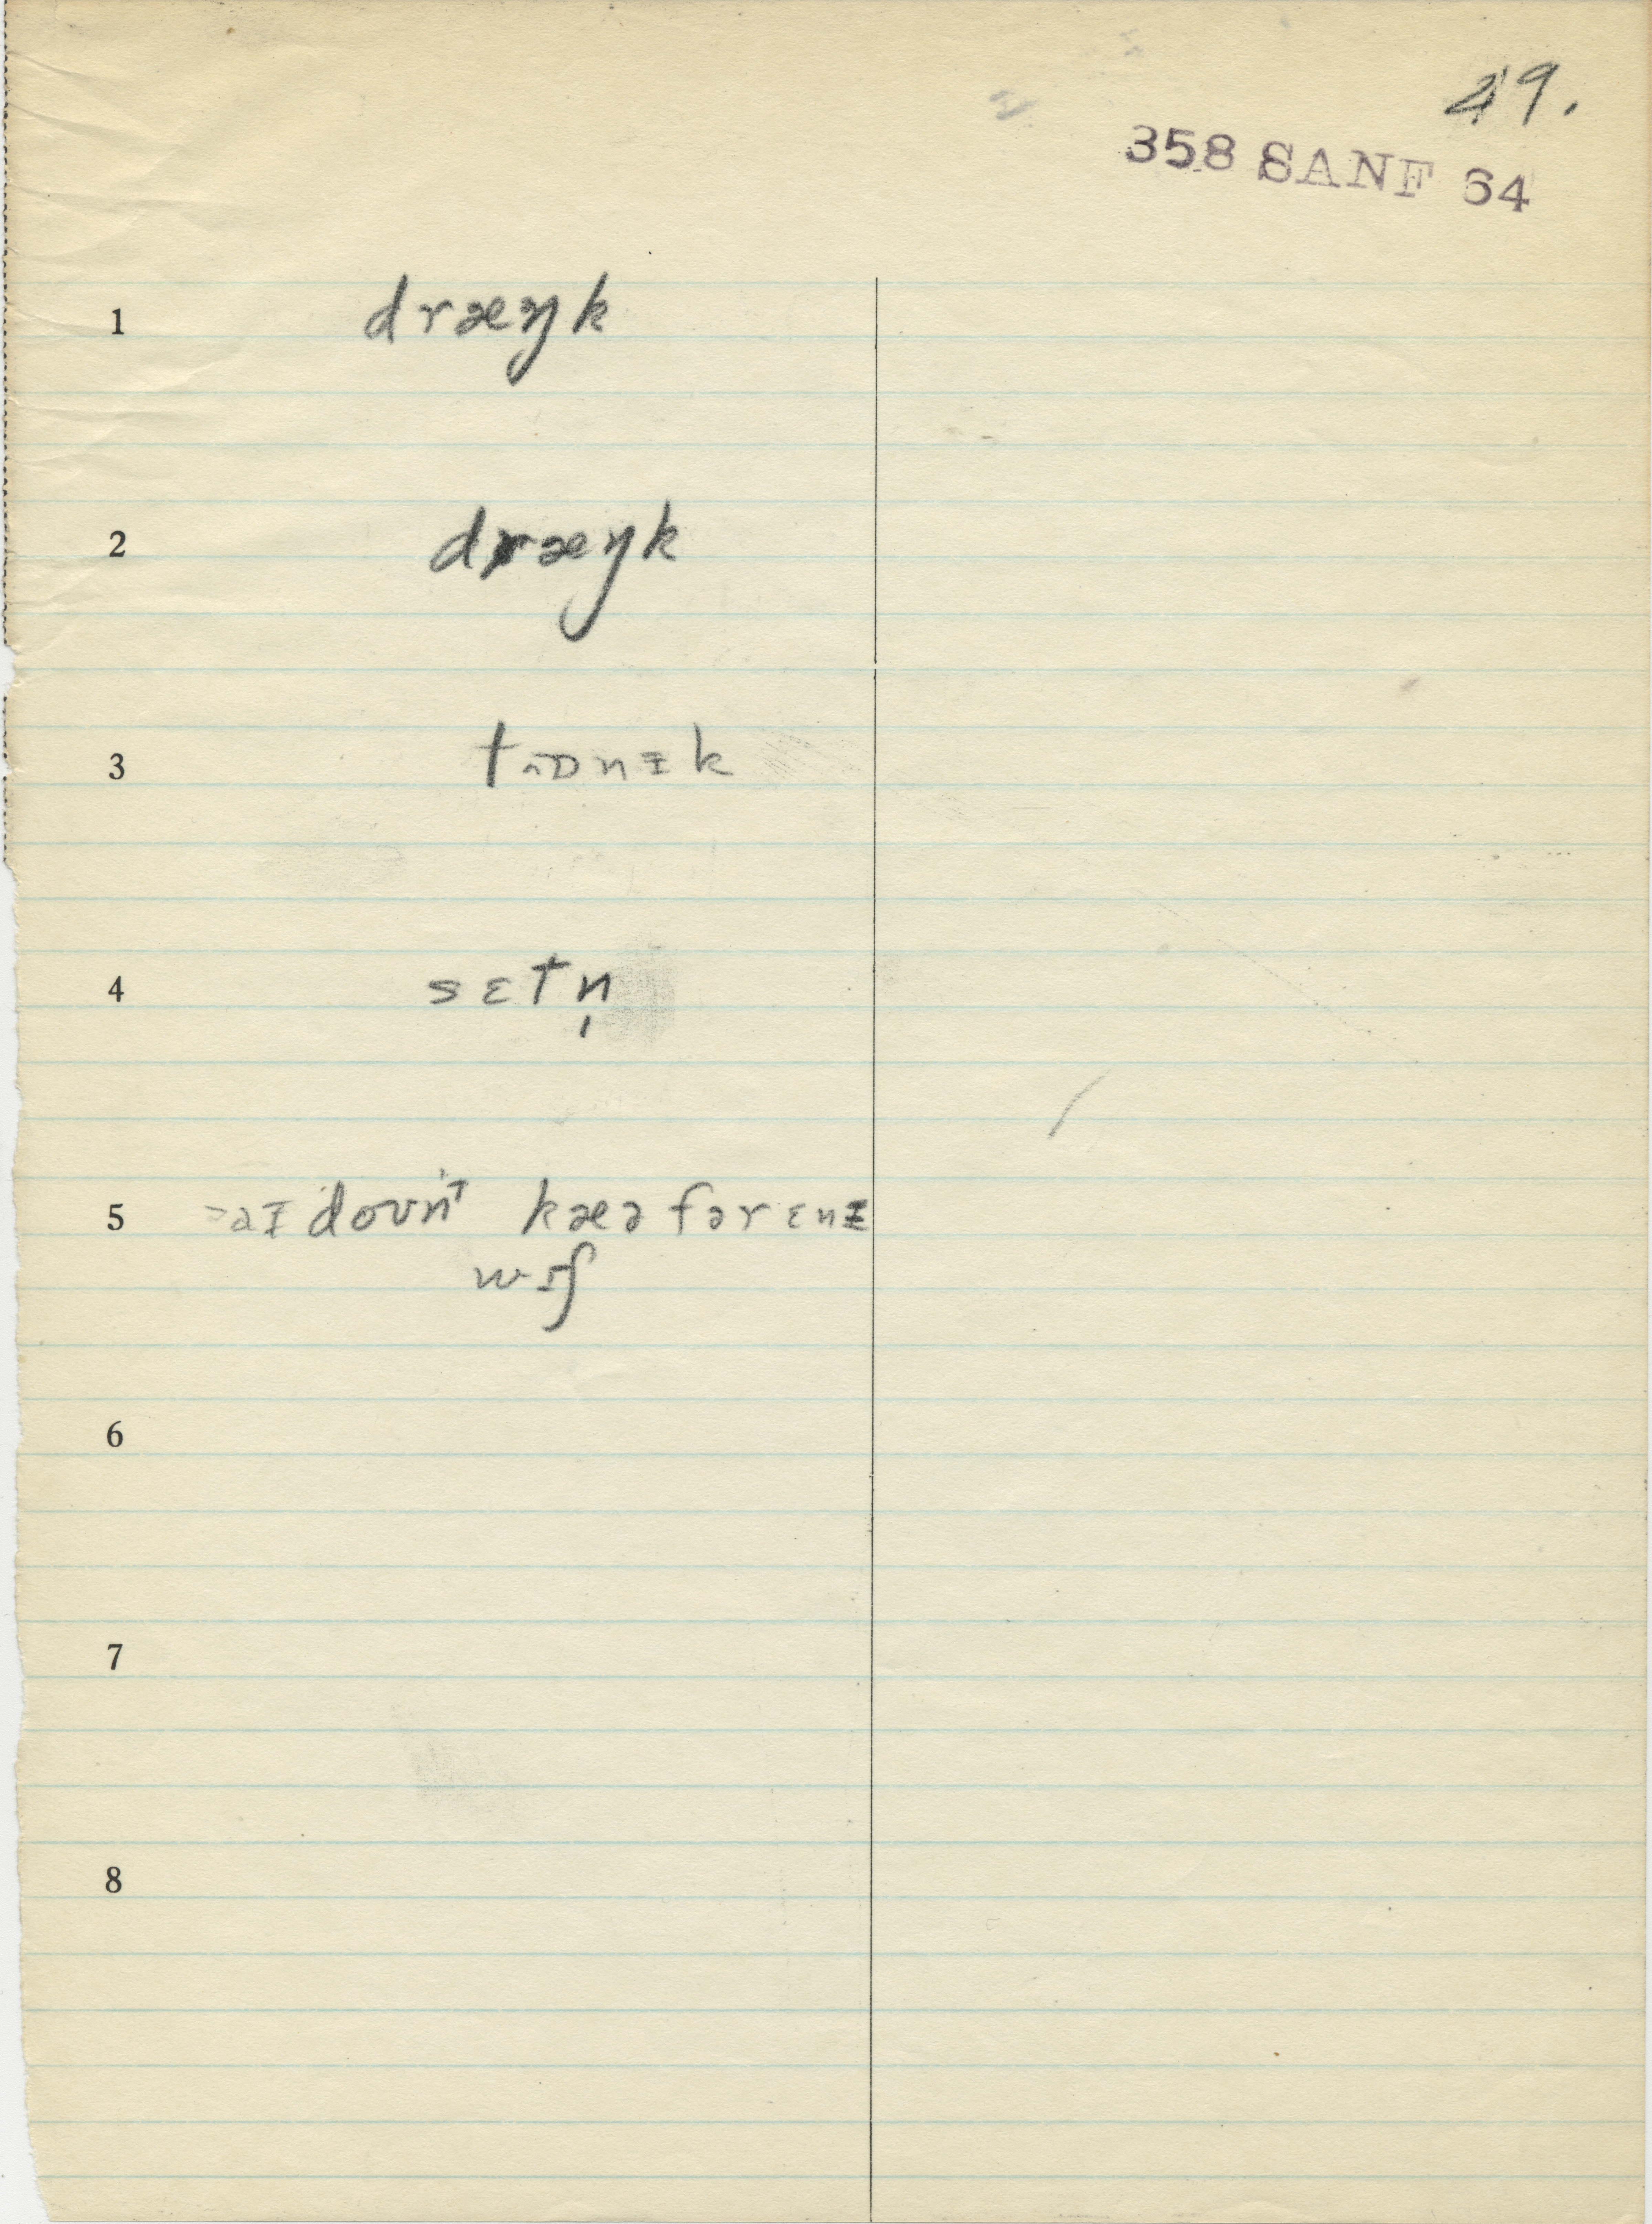 49.
358 SANF 64
1 dræŋk
2 dræŋk
3 tɒnɪk
4 sɛtn̩
5 aɪ doʊnt kæə fər ɛnɪ
wɪʃ
6
7
8